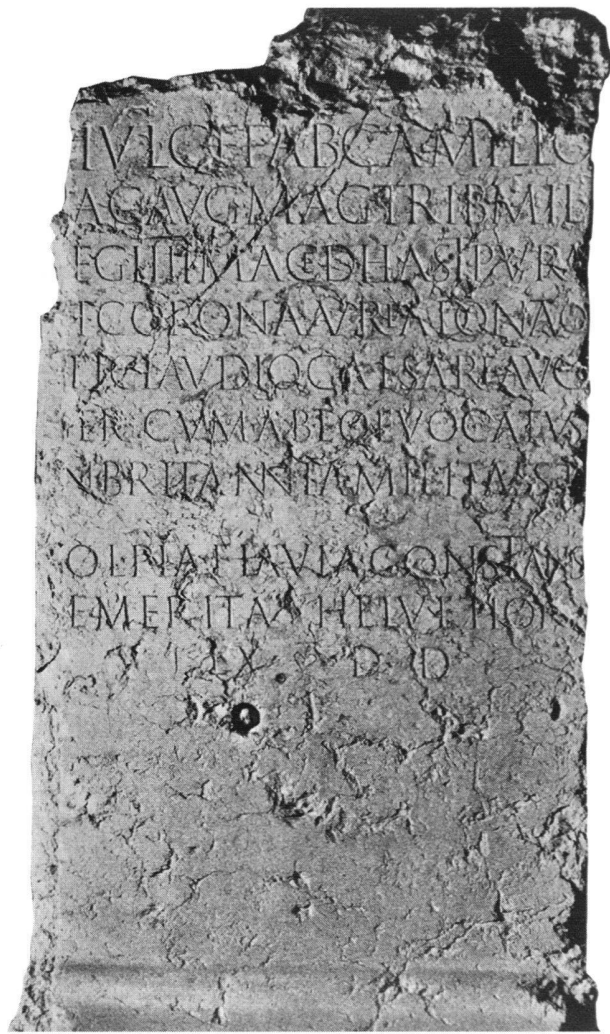 IVL C F FAB CAMILLO
AC AVG MAG TRIB MIL
EG IIII MACED HAST PVRA
T CORONA AVREA DONATO
TI CLAVDIO CAESARE AVG
ER CVM AB EO EVOCATVS
N BRITANNIA MILITASSET
OL PIA FLAVIA CONSTANS
EMERITA HELVETIOR
EX D D